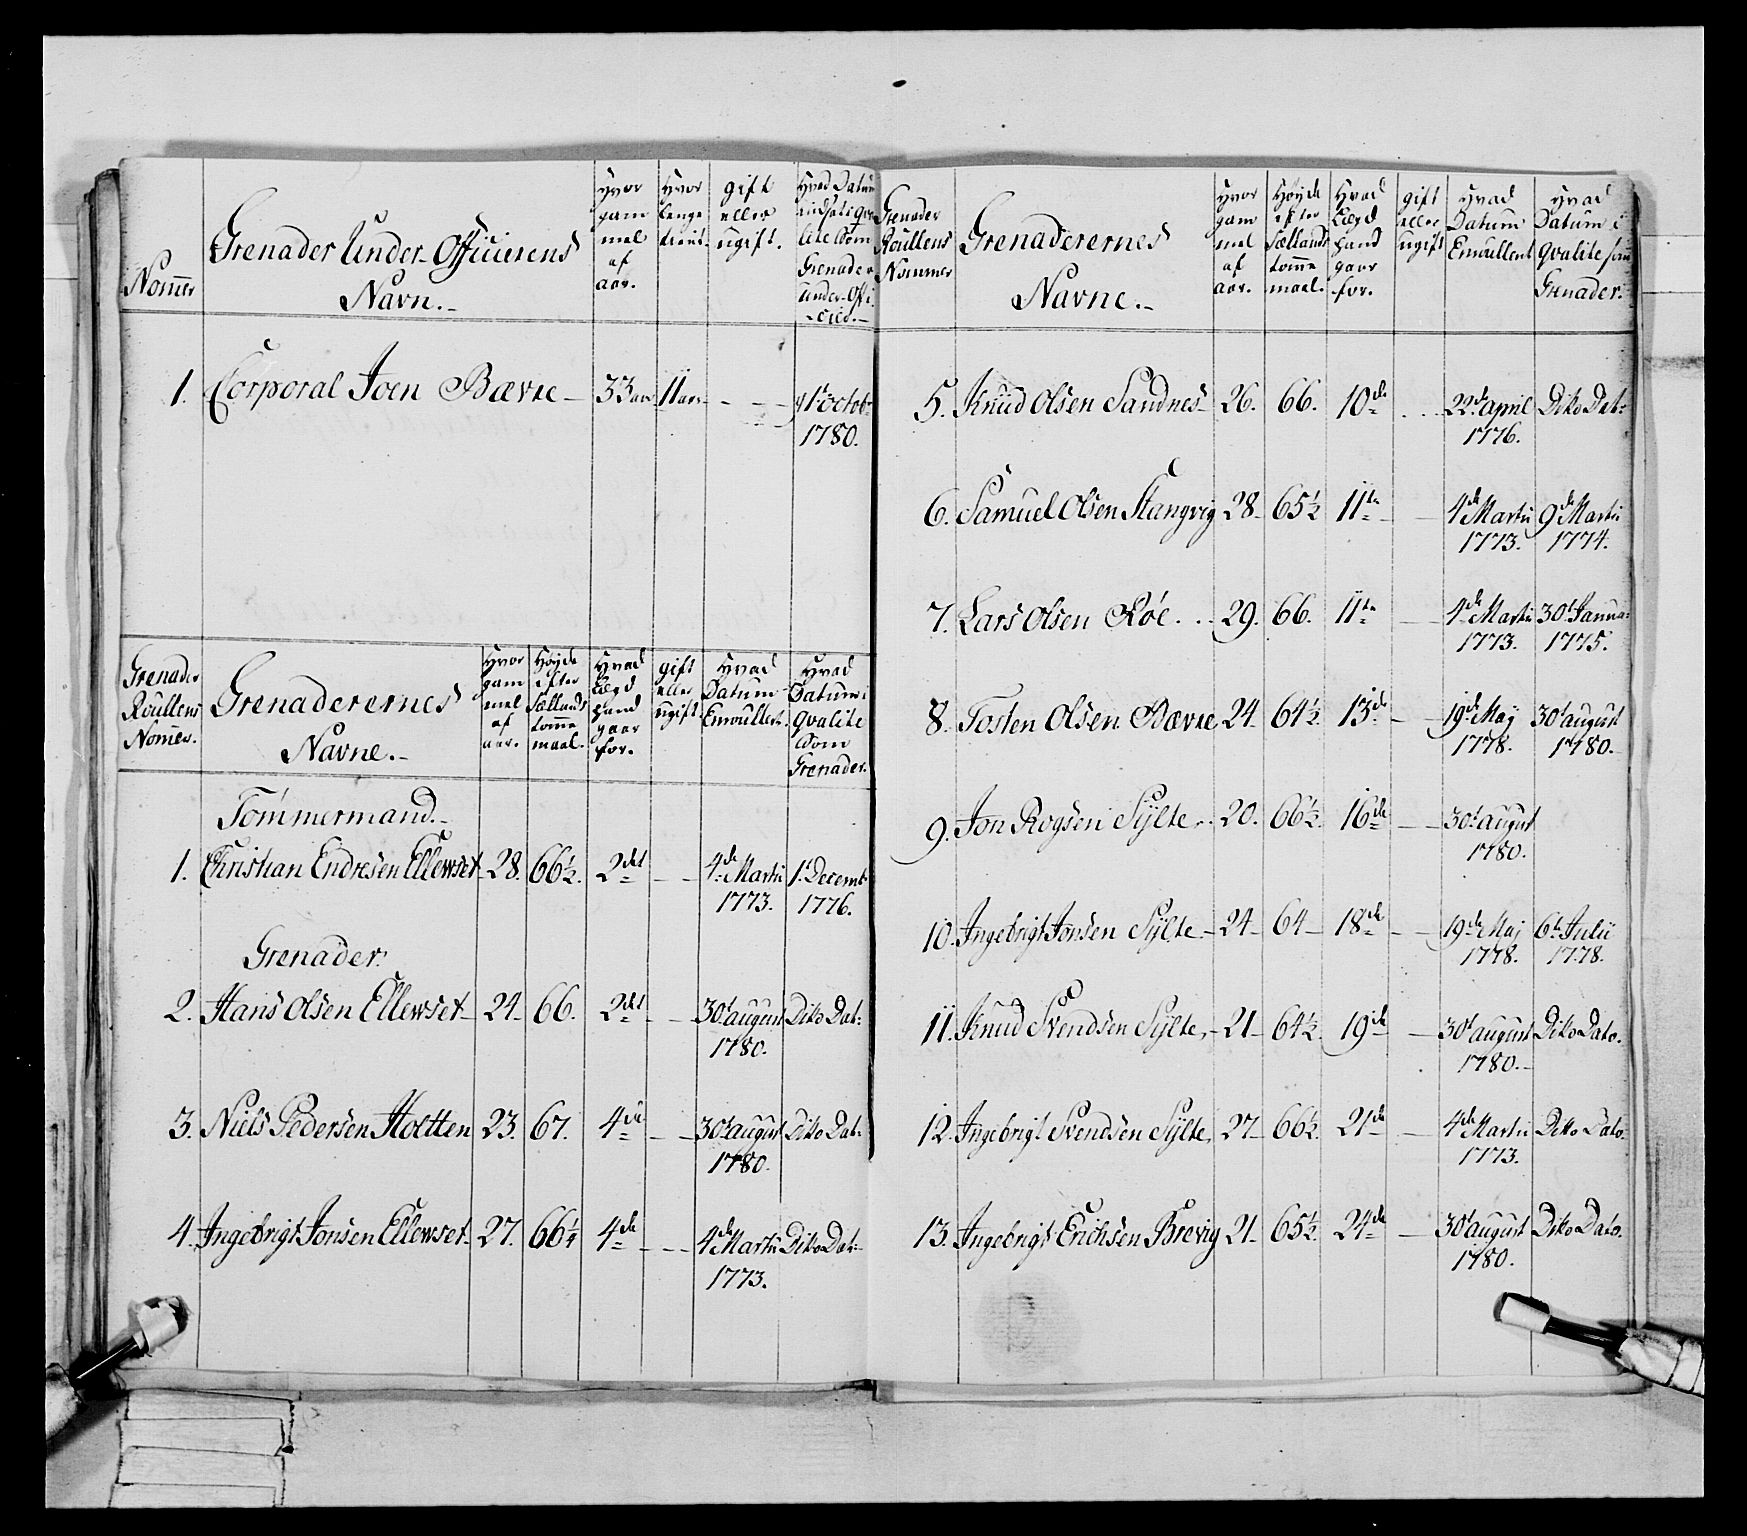 Nommer
Grenader Under-Officierens
Navn.-
Hvor
gam
mel
af
aar.
Hvor
lenge
tient.
gift
eller
ugift.
Hvad Datum
Som
Grenader
Under-Offi
-cier.-
1. Corporal Joen Bævre - 33 aar 11 aar - - - 1t octob:
1780.
Grenader
Roullens
Nomer.
Grenaderernes
Navne.-
Hvor
gam
mel
af
aar.
Høyde
efter
Sællands
tomme
maal.
Hvad
Lægd
hand
gaar
for.
gift
eller
ugift.
Hvad
Datum
Enroullert.
Hvad
Datum i
Qvalite
Som
Grenader.
Tømmermand.-
1. Christian Endresen Ellewset 28. 66½. 2det - - 4de Martii 1t Decemb:
1773. 1776.
Grenader.
2. Hans Olsen Ellewset- 24- 66. 2det - - 30t august Dito Dat:
1780.
3. Niels Pedersen Holtten 23. 67. 4de - - 30t august Dito Dat:
1780.
4. Ingebrigt Jonsen Ellewset- 27. 66¼ 4de - - - 4de Martii Dito Dat:
1773.
Grenader
Roullens
Nommer
Grenaderernes
Navne.-
Hvor
gam
mel
af
aar.
Høyde
efter
Sællands
tomme
maal.
Hvad
Lægd
hand
gaar
for.
gift
eller
ugift
Hvad
Datum
Enroullert
Hvad
Datum i
Qvalite som
Grenader.
5. Knud Olsen Sandnes- 26. 66. 10de . . . 22de april Dito Dat:
1776.
6. Samuel Olsen Stangvig 28- 65½ 11te - - 4de Martii 9de Martii
1773. 1774.
7. Lars Olsen Røe. . . 29. 66. 11te - - 4de Martii 30t Janua:
1773. 1775.
8. Tosten Olsen Bævre 24. 64½. 13de - - 19de Maÿ 30t august
1778. 1780.-
9. Jon Rogsen Sÿlte. . 20. 66½. 16de - - 30t august
1780.
10. Ingebrigt Jonsen Sÿlte.- 24- 64- 18de - - 19de Maj 6te Julii
1778. 1778.
11. Knud Svendsen Sylte,- 21- 64½. 19de - 30t august Dito Dato.
1780.-
12. Ingebrigt Svendsen Sylte, 27- 66½. 21de - 4de Martii Ditto Dato.
1773.
13. Ingebrigt Erichsen Brevig 21- 65½. 24de - 30t august Dito Dato.
1780.